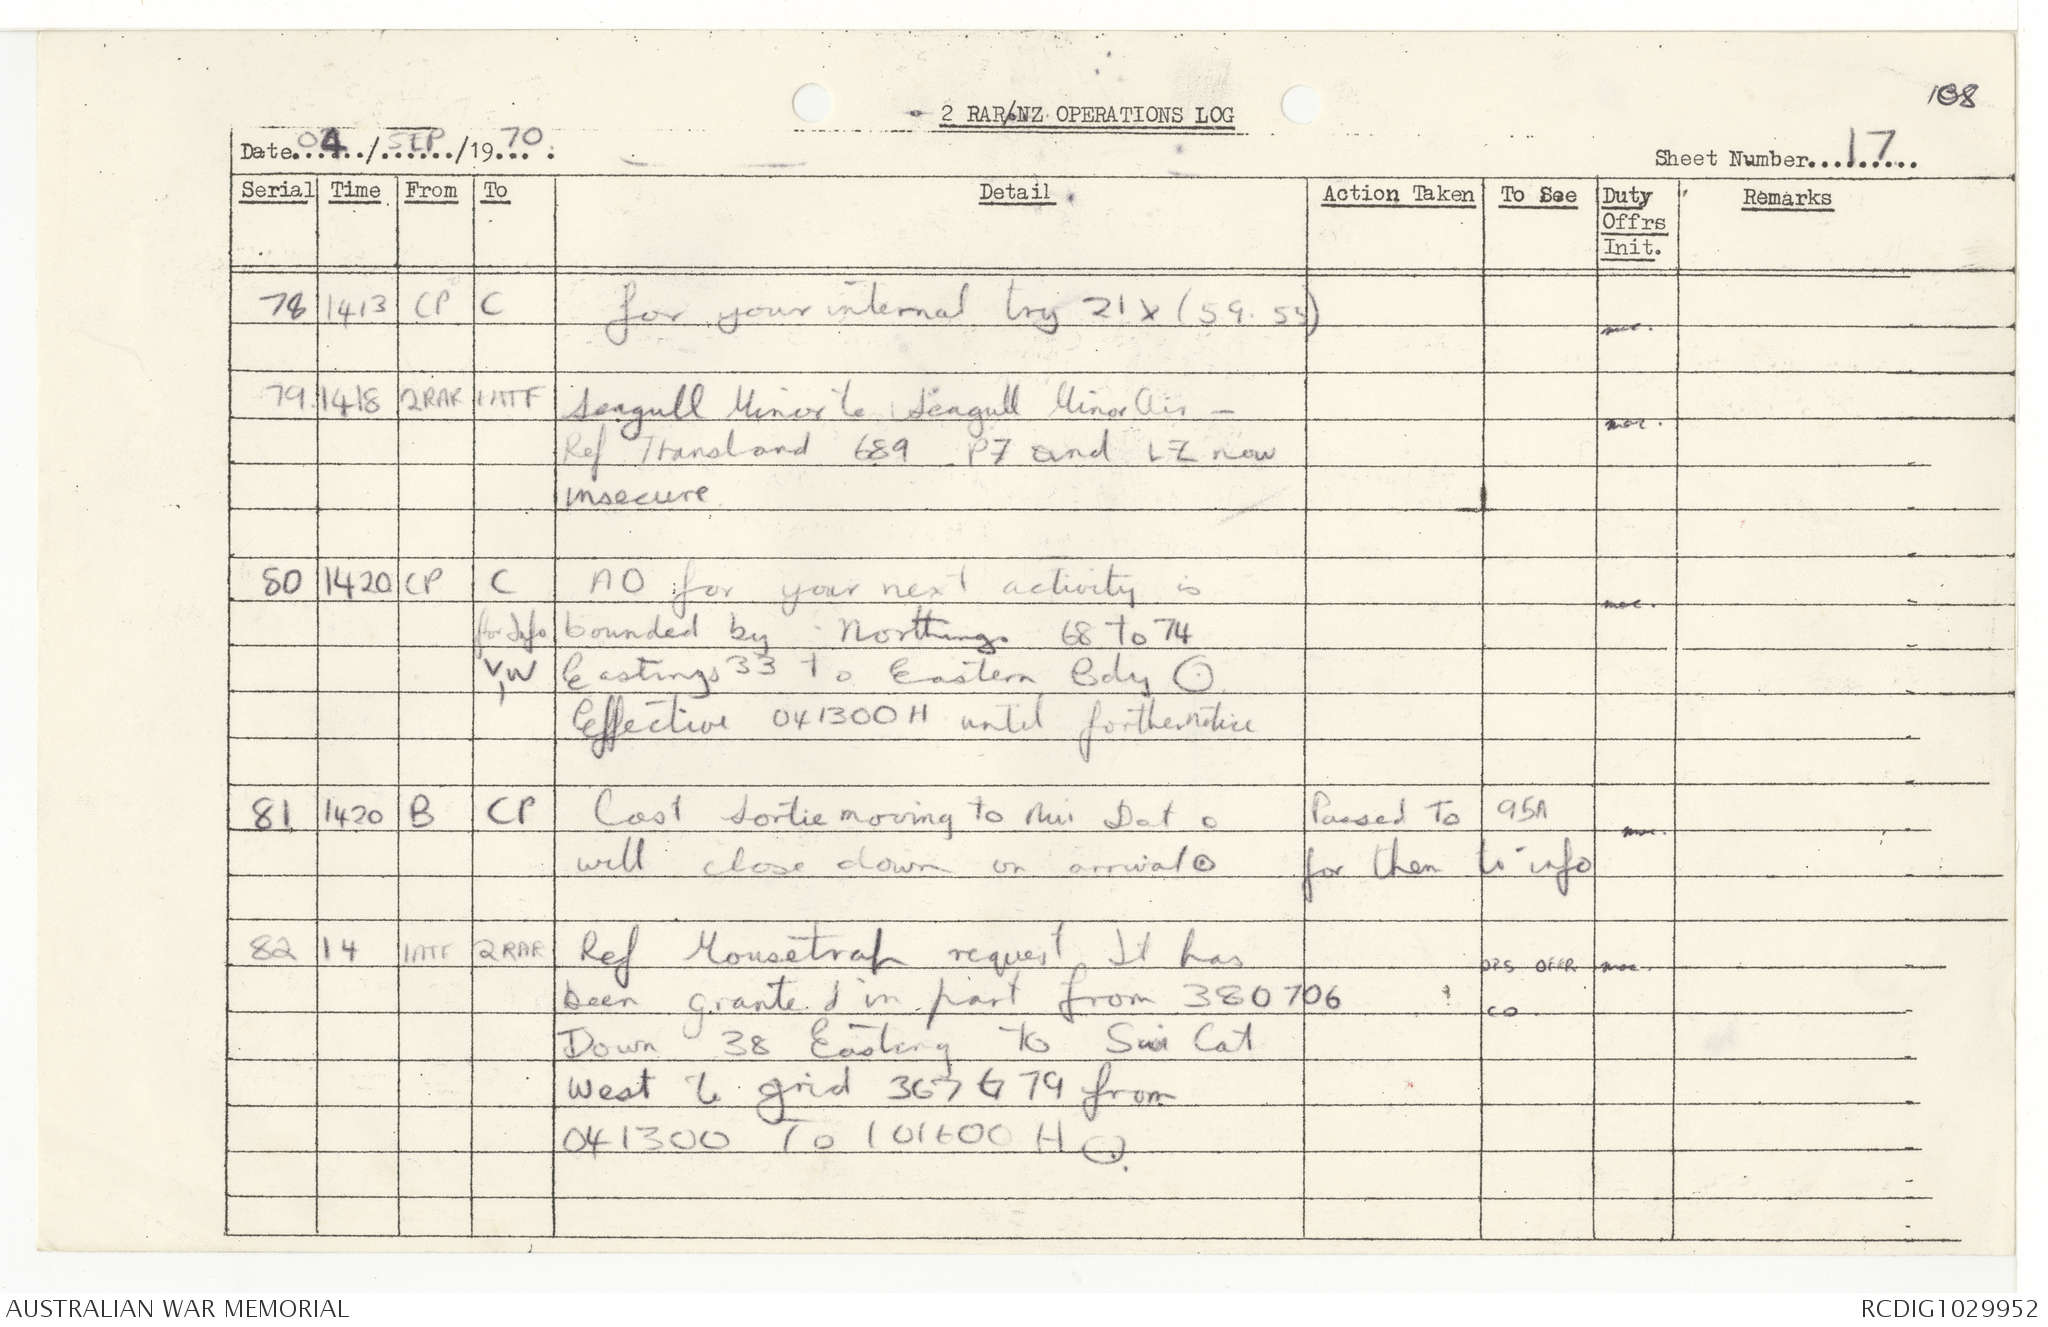 108
2 RAR/NZ OPERATIONS LOG
Date 04/SEP/1970.
Sheet Number 17
Serial Time From To Detail Action Taken To See Duty Offrs Init. Remarks
78 1413 CP C for your internal try 21 x (59.55)
79 1418 2RAR 1ATF Seagull Minor to Seagull Minor Air -
Ref Transland 689 PZ and LZ now
insecure
80 1420 CP C AO for your next activity is
for Info bounded by Northings 68 to 74
V, W Eastings 33 to Eastern Bdy
Effective 041300H until forther notice
81 1420 B CP Last sortie moving to Nui Dat o Passed to 95A
will close down on arrival for them to info
82 14 1ATF 2RAR Ref Mousetrap request It has OPS OFFR
been granted in part from 380706 CO
Down 38 Easting to Sui Cat
West to grid 367679 from
041300 To 101600 H